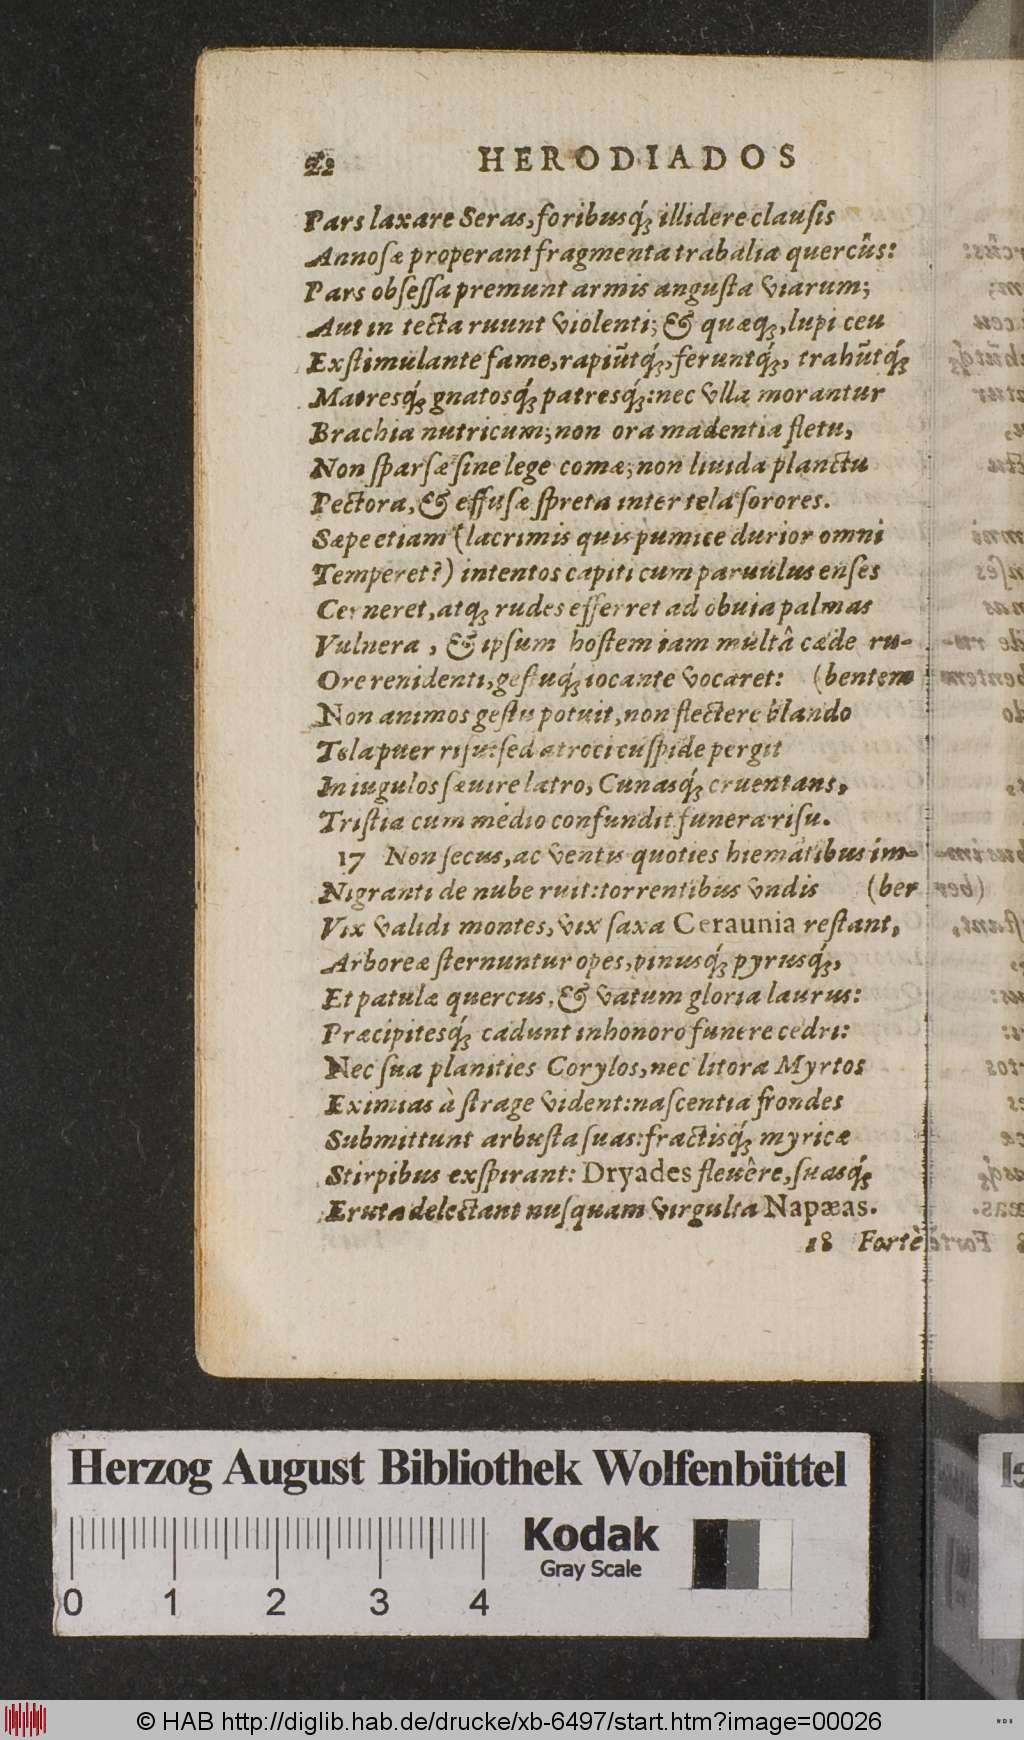 22 HERODIADOS
Pars laxare Seras, foribusq́; illidere clausis
Annosæ properant fragmenta trabalia quercûs:
Pars obsessa premunt armis angusta viarum;
Aut in tecta ruunt violenti; & quæq;, lupi ceu
Exstimulante fame, rapiũtq́;, feruntq́;, trahũtq́;
Matresq́; gnatosq́; patresq́;: nec vlla morantur
Brachia nutricum; non ora madentia fletu,
Non sparsæ sine lege comæ; non liuida planctu
Pectora, & effusæ spreta inter tela sorores.
Sæpe etiam (lacrimis quis pumice durior omni
Temperet?) intentos capiti cum paruulus enses
Cerneret, atq; rudes efferret ad obuia palmas
Vulnera, & ipsum hostem iam multâ cæde ru-
Ore renidenti, gestuq́; iocante vocaret: (bentem
Non animos gestu potuit, non flectere blando
Tela puer risu: sed atroci cuspide pergit
In iugulos sæuire latro, Cunasq́; cruentans,
Tristia cum medio confundit funera risu.
17 Non secus, ac ventis quoties hiematibus im-
Nigranti de nube ruit: torrentibus vndis (ber
Vix validi montes, vix saxa Ceraunia restant,
Arboreæ sternuntur opes, pinusq́; pyrusq́;,
Et patulæ quercus, & vatum gloria laurus:
Præcipitesq́; cadunt inhonoro funere cedri:
Nec sua planities Corylos, nec litora Myrtos
Eximias à strage vident: nascentia frondes
Submittunt arbusta suas: fractisq́; myricæ
Stirpibus exspirant: Dryades fleuêre, suasq́;
Eruta delectant nusquam virgulta Napæas.
18 Fortè
Herzog August Bibliothek Wolfenbüttel
Kodak
Gray Scale
0 1 2 3 4
© HAB http://diglib.hab.de/drucke/xb-6497/start.htm?image=00026